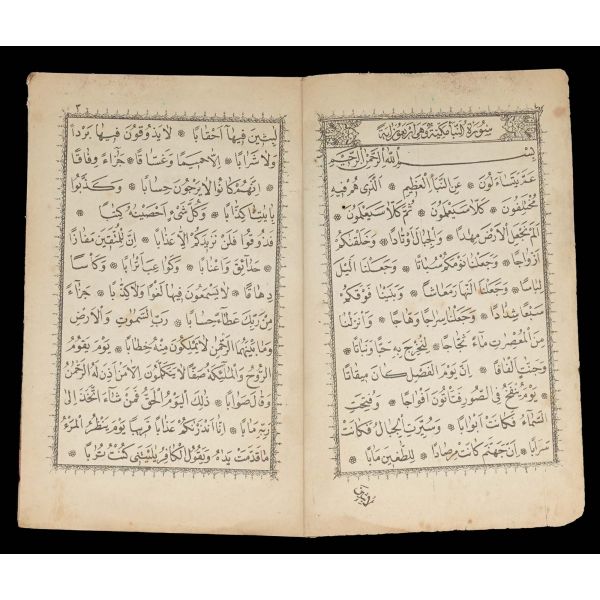 سُورَةُ النَّبَإِ مَكِّيَّةٌ وَهِىَ اَرْبَعُونَ اٰيَة
بِسْمِ اللّٰهِ الرَّحْمٰنِ الرَّحِيمِ
عَمَّ يَتَسَاءَلُونَ ❋ عَنِ النَّبَاِ الْعَظِيمِ ❋ الَّذِى هُمْ فِيهِ
مُخْتَلِفُونَ ❋ كَلَّا سَيَعْلَمُونَ ❋ ثُمَّ كَلَّا سَيَعْلَمُونَ ❋
اَلَمْ نَجْعَلِ الْاَرْضَ مِهٰدًا ❋ وَالْجِبَالَ اَوْتَادًا ❋ وَخَلَقْنٰكُمْ
اَزْوَاجًا ❋ وَجَعَلْنَا نَوْمَكُمْ سُبَاتًا ❋ وَجَعَلْنَا الَّيْلَ
لِبَاسًا ❋ وَجَعَلْنَا النَّهَارَ مَعَاشًا ❋ وَبَنَيْنَا فَوْقَكُمْ
سَبْعًا شِدَادًا ❋ وَجَعَلْنَا سِرَاجًا وَهَّاجًا ❋ وَاَنْزَلْنَا
مِنَ الْمُعْصِرٰتِ مَاءً ثَجَّاجًا ❋ لِنُخْرِجَ بِهِ حَبًّا وَنَبَاتًا ❋
وَجَنّٰتٍ اَلْفَافًا ❋ اِنَّ يَوْمَ الْفَصْلِ كَانَ مِيقَاتًا
❋ يَوْمَ يُنْفَخُ فِى الصُّورِ فَتَأْتُونَ اَفْوَاجًا ❋ وَفُتِحَتِ
السَّمَاءُ فَكَانَتْ اَبْوَابًا ❋ وَسُيِّرَتِ الْجِبَالُ فَكَانَتْ
سَرَابًا ❋ اِنَّ جَهَنَّمَ كَانَتْ مِرْصَادًا ❋ لِلطّٰغِينَ مَاٰبًا ❋
٣
لٰبِثِينَ فِيهَا اَحْقَابًا ❋ لَا يَذُوقُونَ فِيهَا بَرْدًا
وَلَا شَرَابًا ❋ اِلَّا حَمِيمًا وَغَسَّاقًا ❋ جَزَاءً وِفَاقًا
❋ اِنَّهُمْ كَانُوا لَا يَرْجُونَ حِسَابًا ❋ وَكَذَّبُوا
بِاٰيٰتِنَا كِذَّابًا ❋ وَكُلَّ شَىْءٍ اَحْصَيْنٰهُ كِتٰبًا ❋
فَذُوقُوا فَلَنْ نَزِيدَكُمْ اِلَّا عَذَابًا ❋ اِنَّ لِلْمُتَّقِينَ مَفَازًا
❋ حَدَائِقَ وَاَعْنَابًا ❋ وَكَوَاعِبَ اَتْرَابًا ❋ وَكَأْسًا
دِهَاقًا ❋ لَا يَسْمَعُونَ فِيهَا لَغْوًا وَلَا كِذَّابًا ❋ جَزَاءً
مِنْ رَبِّكَ عَطَاءً حِسَابًا ❋ رَبِّ السَّمٰوٰتِ وَالْاَرْضِ
وَمَا بَيْنَهُمَا الرَّحْمٰنِ لَا يَمْلِكُونَ مِنْهُ خِطَابًا ❋ يَوْمَ يَقُومُ
الرُّوحُ وَالْمَلٰئِكَةُ صَفًّا لَا يَتَكَلَّمُونَ اِلَّا مَنْ اَذِنَ لَهُ الرَّحْمٰنُ
وَقَالَ صَوَابًا ❋ ذٰلِكَ الْيَوْمُ الْحَقُّ فَمَنْ شَاءَ اتَّخَذَ اِلٰى
رَبِّهِ مَاٰبًا ❋ اِنَّا اَنْذَرْنٰكُمْ عَذَابًا قَرِيبًا يَوْمَ يَنْظُرُ الْمَرْءُ
مَا قَدَّمَتْ يَدَاهُ وَيَقُولُ الْكَافِرُ يٰلَيْتَنِى كُنْتُ تُرٰبًا